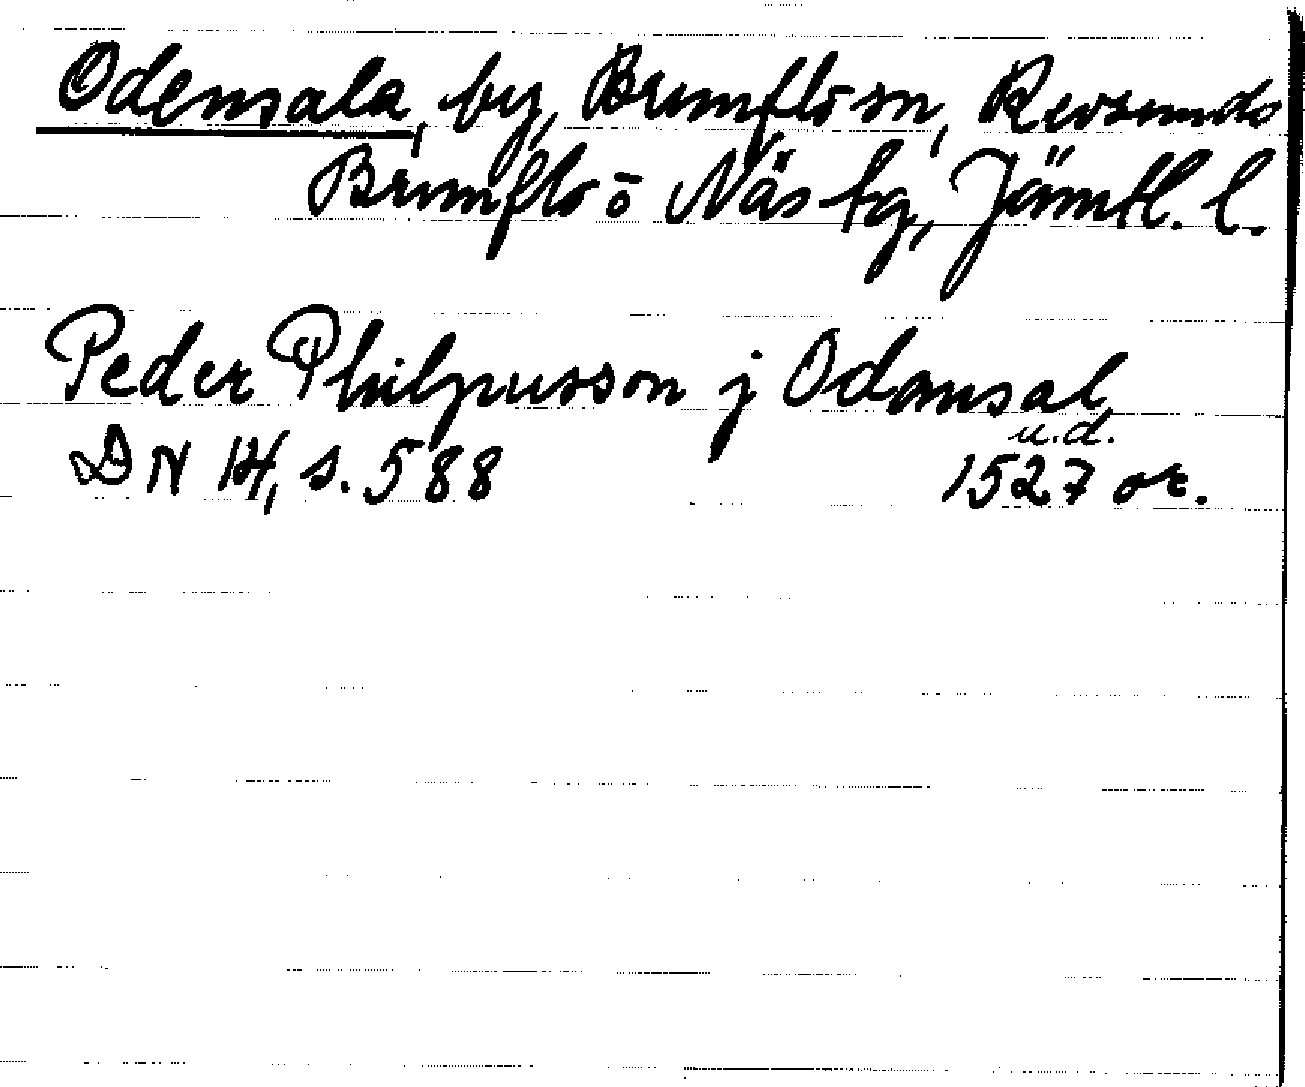 Odensala, by, Brunflo sn, Revsunds
Brunflo o Näs tg, Jämtl. l.
Peder Philpusson j Odansal
u.d.
DN 14, s. 588 1527 or.